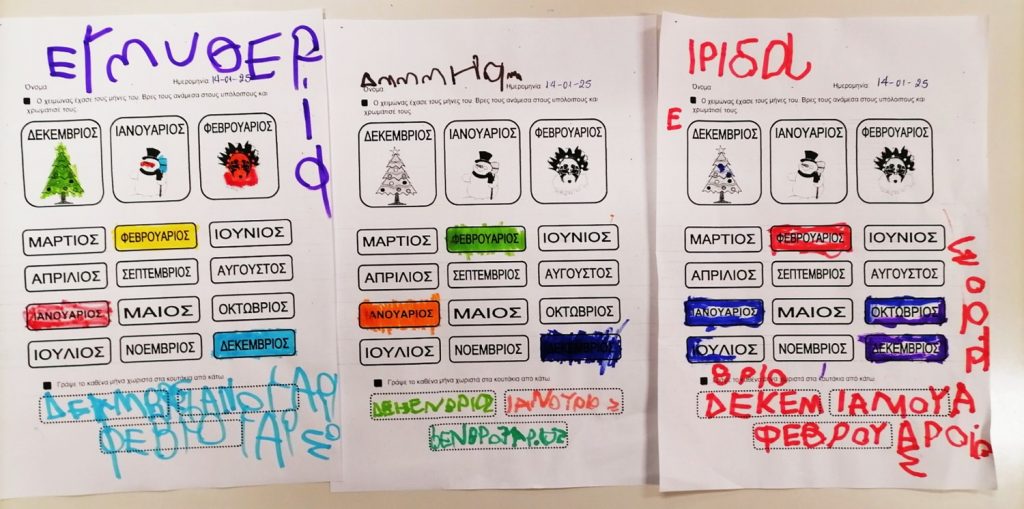 ΕΓΜΥΘΕΡ
Όνομα Ημερομηνία: 14-01-25
Ο χειμώνας έχασε τους μήνες του. Βρες τους ανάμεσα στους υπόλοιπους και
χρωμάτισέ τους.
ΔΕΚΕΜΒΡΙΟΣ ΙΑΝΟΥΑΡΙΟΣ ΦΕΒΡΟΥΑΡΙΟΣ
ΜΑΡΤΙΟΣ ΦΕΒΡΟΥΑΡΙΟΣ ΙΟΥΝΙΟΣ
ΑΠΡΙΛΙΟΣ ΣΕΠΤΕΜΒΡΙΟΣ ΑΥΓΟΥΣΤΟΣ
ΙΑΝΟΥΑΡΙΟΣ ΜΑΙΟΣ ΟΚΤΩΒΡΙΟΣ
ΙΟΥΛΙΟΣ ΝΟΕΜΒΡΙΟΣ ΔΕΚΕΜΒΡΙΟΣ
Γράψε το καθένα μήνα χωριστά στα κουτάκια από κάτω
Όνομα Ημερομηνία: 14-01-25
Ο χειμώνας έχασε τους μήνες του. Βρες τους ανάμεσα στους υπόλοιπους και
χρωμάτισέ τους.
ΔΕΚΕΜΒΡΙΟΣ ΙΑΝΟΥΑΡΙΟΣ ΦΕΒΡΟΥΑΡΙΟΣ
ΜΑΡΤΙΟΣ ΦΕΒΡΟΥΑΡΙΟΣ ΙΟΥΝΙΟΣ
ΑΠΡΙΛΙΟΣ ΣΕΠΤΕΜΒΡΙΟΣ ΑΥΓΟΥΣΤΟΣ
ΙΑΝΟΥΑΡΙΟΣ ΜΑΙΟΣ ΟΚΤΩΒΡΙΟΣ
ΙΟΥΛΙΟΣ ΝΟΕΜΒΡΙΟΣ ΔΕΚΕΜΒΡΙΟΣ
Γράψε το καθένα μήνα χωριστά στα κουτάκια από κάτω
ΙΑΝΟΥΡΙΟΣ
ΙΡΙΔΑ
Όνομα Ημερομηνία: 14-01-25
Ο χειμώνας έχασε τους μήνες του. Βρες τους ανάμεσα στους υπόλοιπους και
χρωμάτισέ τους.
Ε
ΔΕΚΕΜΒΡΙΟΣ ΙΑΝΟΥΑΡΙΟΣ ΦΕΒΡΟΥΑΡΙΟΣ
ΜΑΡΤΙΟΣ ΦΕΒΡΟΥΑΡΙΟΣ ΙΟΥΝΙΟΣ
ΑΠΡΙΛΙΟΣ ΣΕΠΤΕΜΒΡΙΟΣ ΑΥΓΟΥΣΤΟΣ
ΙΑΝΟΥΑΡΙΟΣ ΜΑΙΟΣ ΟΚΤΩΒΡΙΟΣ
ΙΟΥΛΙΟΣ ΝΟΕΜΒΡΙΟΣ ΔΕΚΕΜΒΡΙΟΣ
Γράψε το καθένα μήνα χωριστά στα κουτάκια από κάτω
ΘΡΙΟ
ΔΕΚΕΜ ΙΑΜΟΥΑ
ΦΕΒΡΟΥ